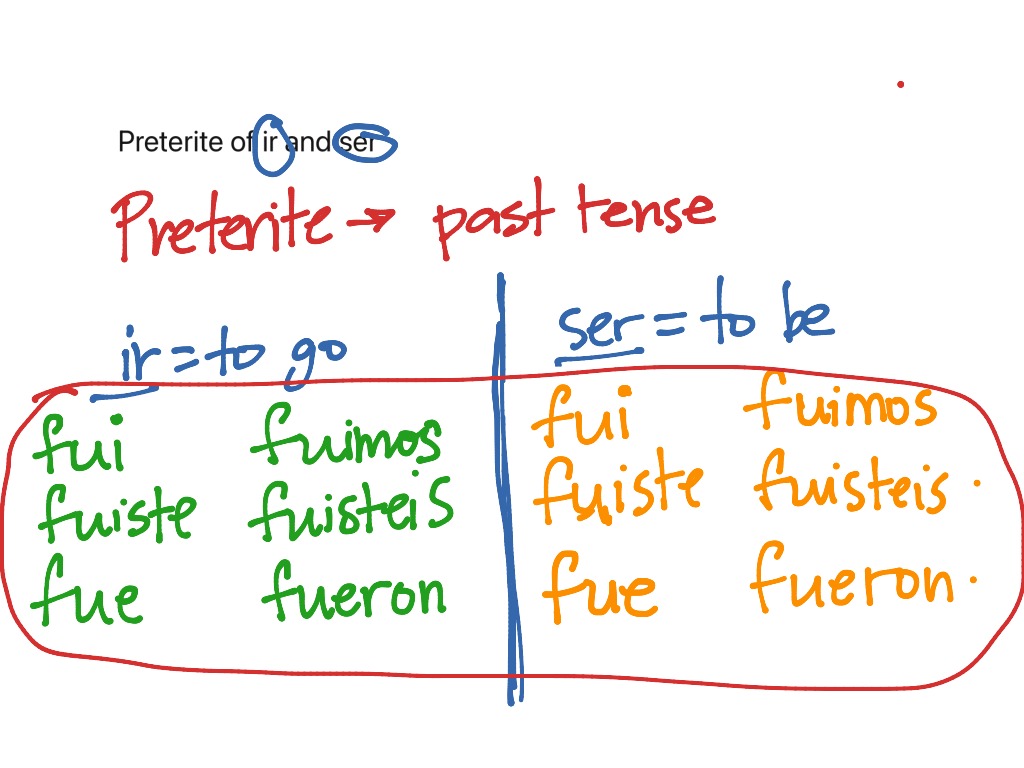 Preterite of ir and ser
Preterite → past tense
ir = to go
fui fuimos
fuiste fuisteis
fue fueron
ser = to be
fui fuimos
fuiste fuisteis .
fue fueron .